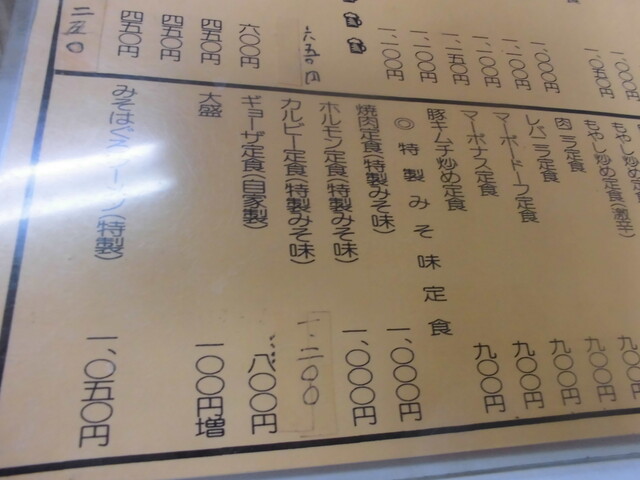 一、〇〇〇円
一、〇五〇円
一、〇〇〇円
一、一〇〇円
一、一〇〇円
一、一五〇円
一、一〇〇円
一、一〇〇円
六五〇円
六〇〇円
四五〇円
四五〇円
四五〇円
二五〇
もやし炒め定食
九〇〇円
もやし炒め定食(激辛)
九〇〇円
肉ニラ定食
九〇〇円
レバニラ定食
九〇〇円
マーボードーフ定食
九〇〇円
マーボナス定食
九〇〇円
豚キムチ炒め定食
◎特製みそ味定食
焼肉定食(特製みそ味)
一、〇〇〇円
ホルモン定食(特製みそ味)
一、〇〇〇円
カルビー定食(特製みそ味)
一、二〇〇
ギョーザ定食(自家製)
八〇〇円
大盛
一〇〇円増
(特製)
一、〇五〇円